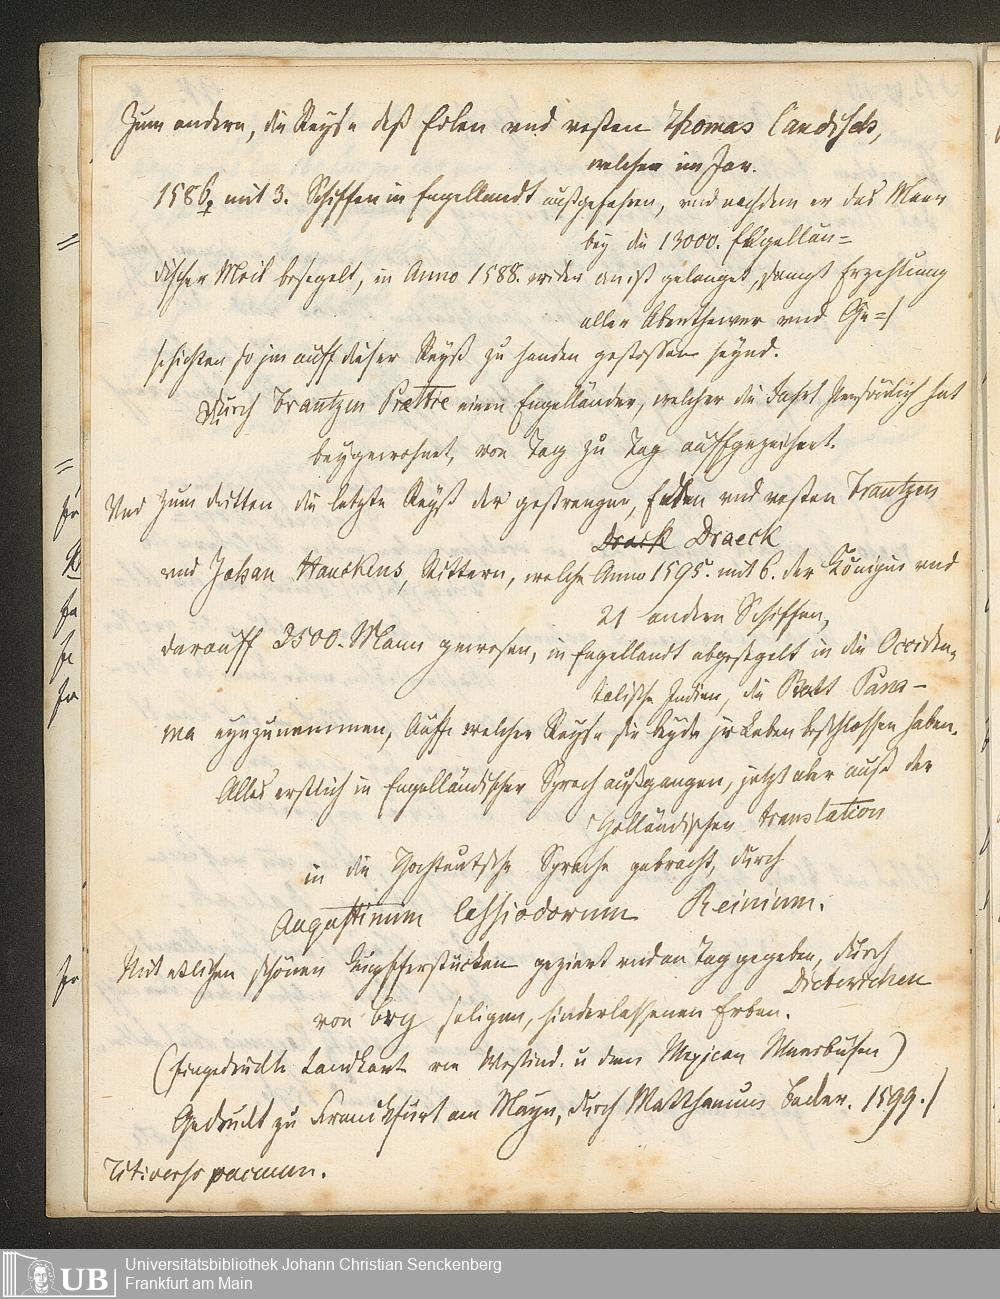 Zum andern, die Reyse deß Edlen vnd vesten Thomas Candisch,
welcher im Jar.
1586 mit 3. Schiffen in Engellandt außgefahren, vnd nachdem er das Meer
bey die 13000. Engellän=
discher Meil besegelt, in Anno 1588. wider anheiß gelanget, sampt Erzehlung
aller Abenthewer vnd Ge=/
schichten so jm auff dieser Reyß zu handen gestossen seynd.
Durch Frantzen Prættie einen Engelländer, welcher die Fahrt Persönlich hat
beygewohnet, von Tag zu Tag auffgezeichnet.
Vnd zum dritten die letzte Reyß der gestrengen, Edlen vnd vesten Frantzen
Draeck
vnd Johan Hauckens, Rittern, welche Anno 1595. mit 6. der Königin vnd
21 andern Schiffen,
darauff 2500. Mann gewesen, in Engellandt abgesegelt in die Occiden=
talische Indien, die Statt Pana-
ma eynzunemmen, Auff welcher Reyse sie beyde jr Leben beschlossen haben.
Alles erstlich in Engelländischer Sprach außgangen, jetzt aber auß der
Holländischen translation
in die Hochteutsche Sprache gebracht, durch
Augustinum Cassiodorum Reinium.
Mit etlichen schönen Kupfferstücken geziert vnd an Tag gegeben, durch
Dieterichen
von Bry seligen, hinderlassenen Erben.
(Eingedruckte Landkart von Westind. u dem Mexican Meerbusen)
Gedruckt zu Franckfurt am Mayn, durch Matthæum Becker. 1599./
Tit: verso vacuum.
Universitätsbibliothek Johann Christian Senckenberg
UB
Frankfurt am Main